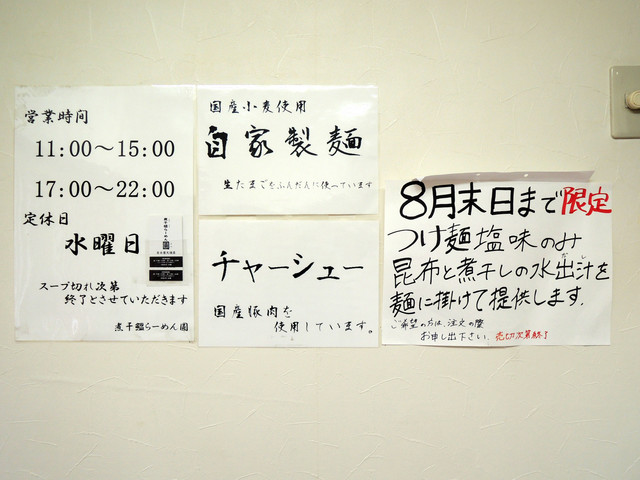 営業時間
11:00～15:00
17:00～22:00
定休日
水曜日
スープ切れ次第
終了とさせていただきます
煮干鰮らーめん圓
国産小麦使用
自家製麺
生たまごをふんだんに使っています
チャーシュー
国産豚肉を
使用しています。
8月末日まで限定
つけ麺塩味のみ
昆布と煮干しの水出汁を
だし
麺に掛けて提供します.
ご希望の方は、注文の際
お申し出下さい. 売切次第終了